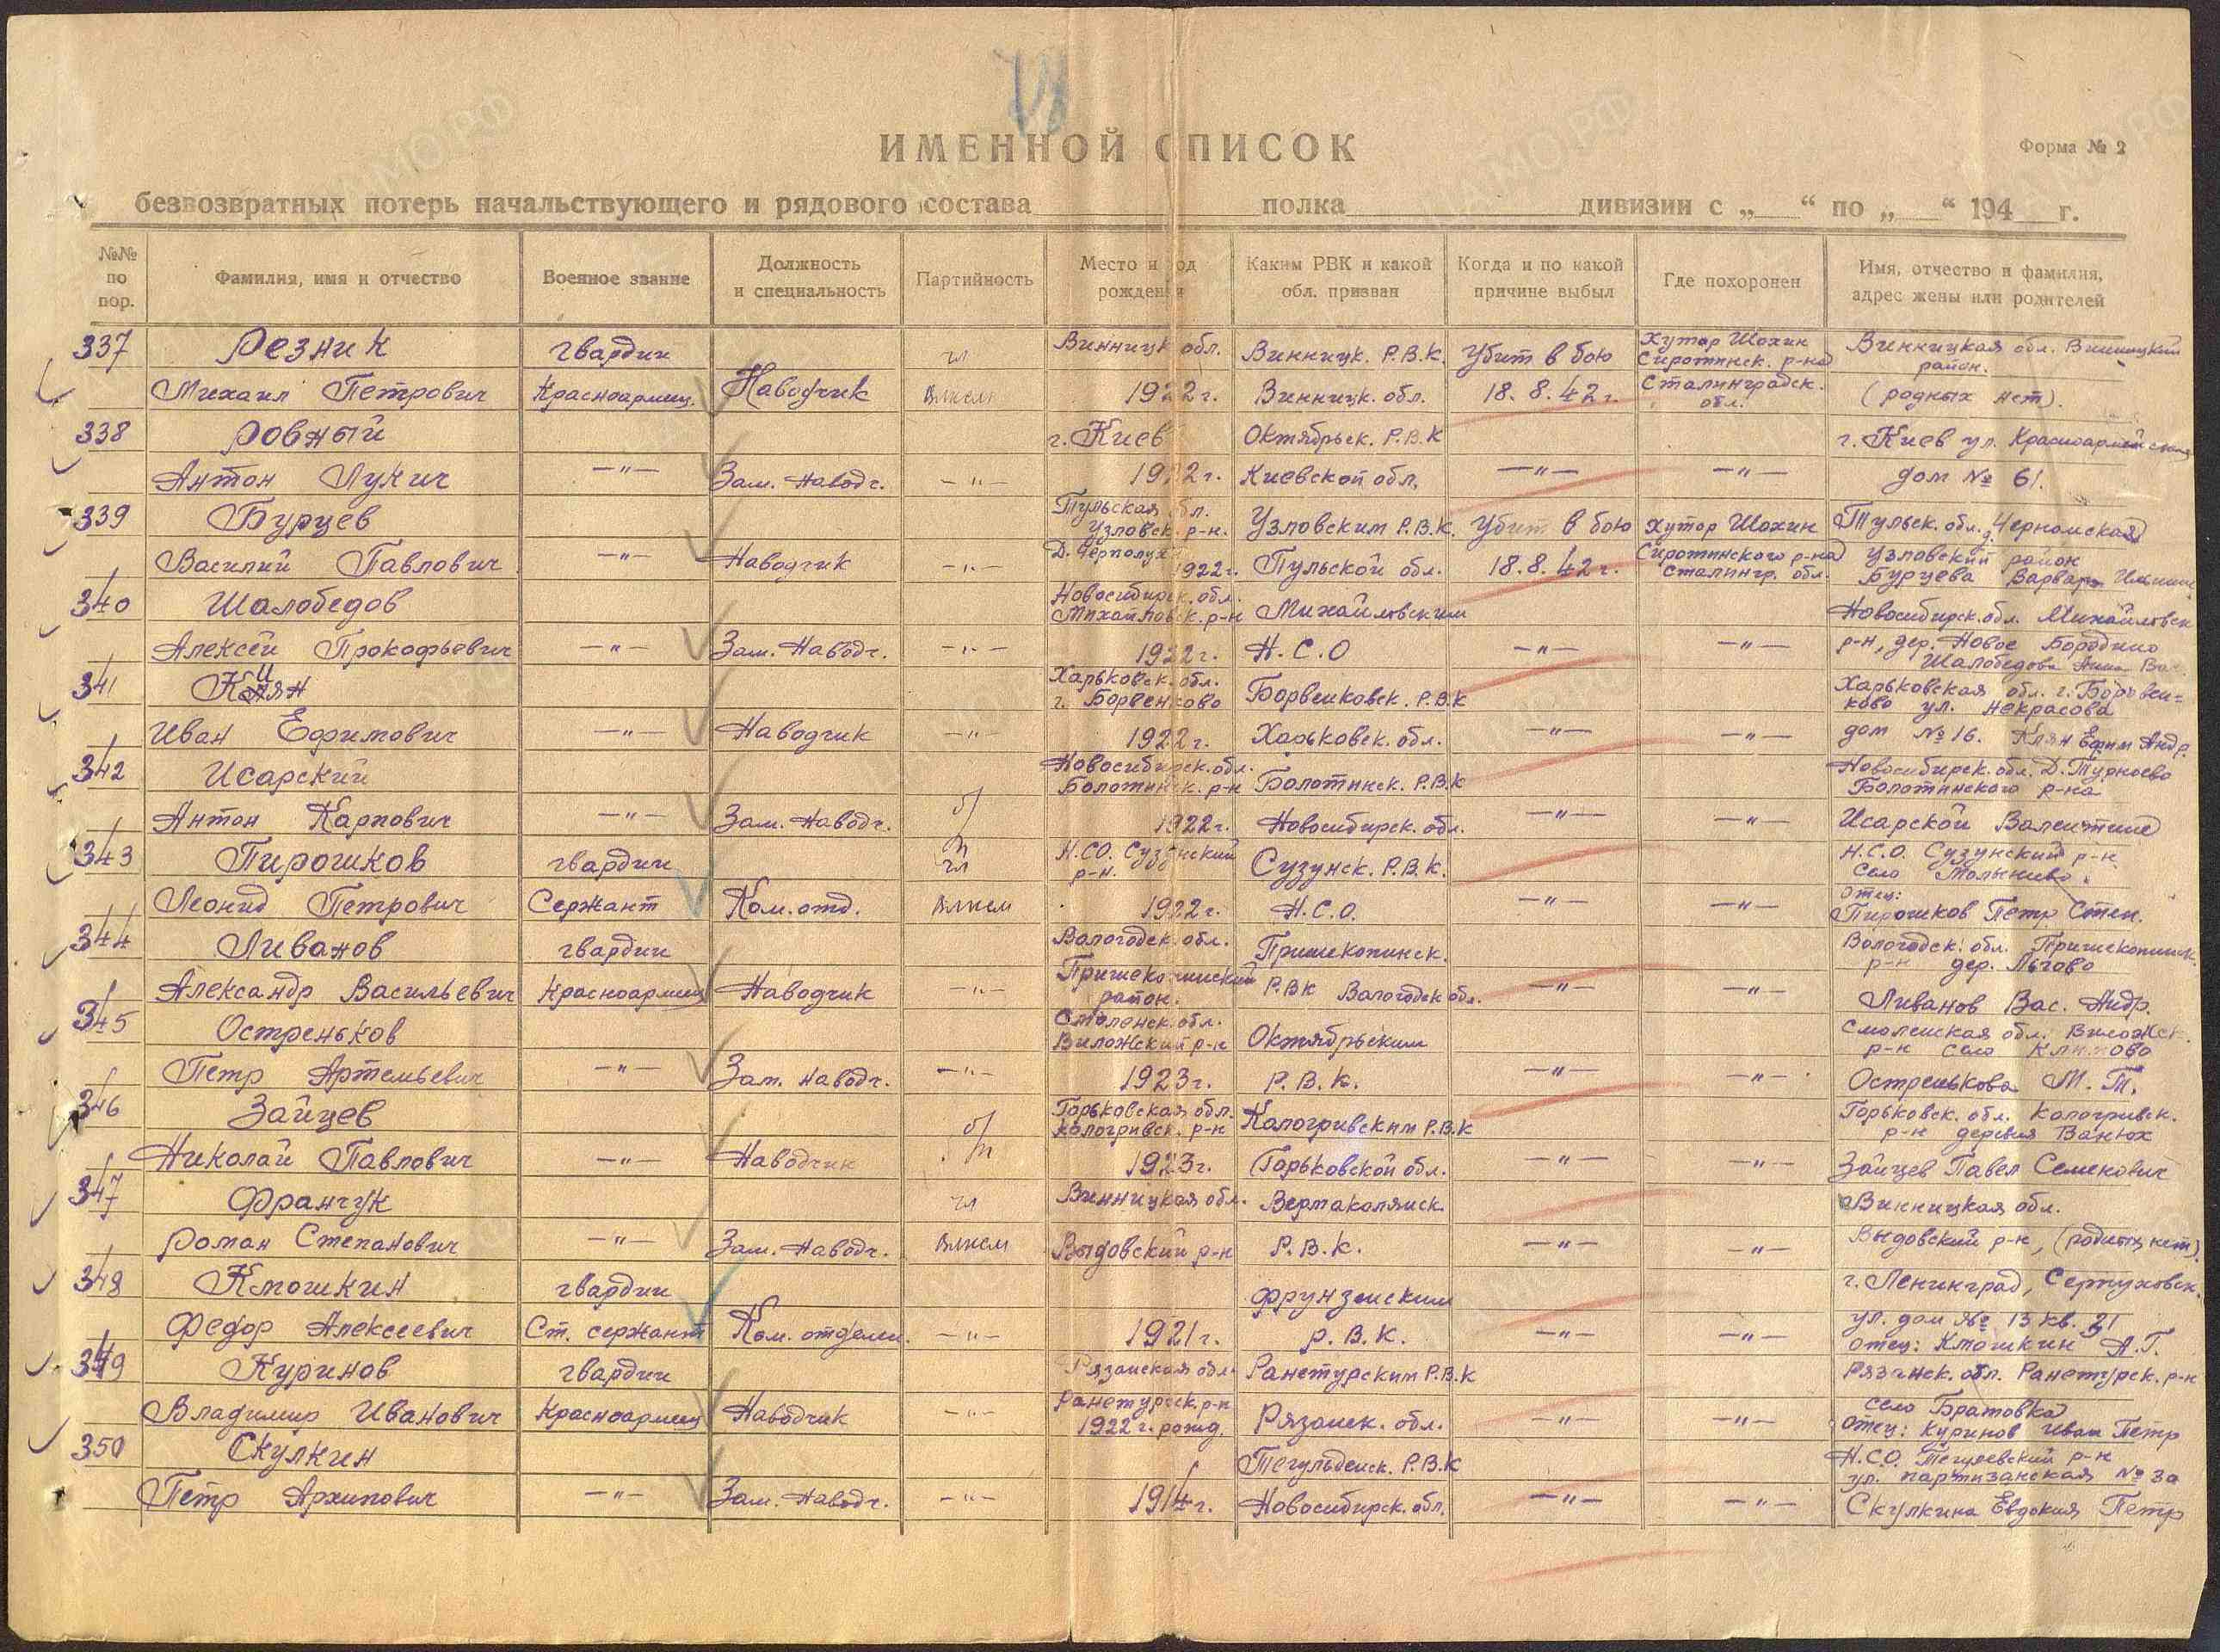 ИМЕННОЙ СПИСОК
Форма № 2
безвозвратных потерь начальствующего и рядового состава полка дивизии с „ “ по „ “ 194 г.
№№ по пор. Фамилия, имя и отчество Военное звание Должность и специальность Партийность Место и год рождения Каким РВК и какой обл. призван Когда и по какой причине выбыл Где похоронен Имя, отчество и фамилия, адрес жены или родителей
337 Резник гвардии чл Винницк обл. Винницк. Р.В.К. Убит в бою Хутор Шохин Сиротинск. р-на Винницкая обл. Винницкий район.
Михаил Петрович Красноармеец. Наводчик Влксм 1922г. Винницк. обл. 18.8.42г. Сталинградск. обл. (родных нет).
338 Ровный г. Киев Октябрьск. Р.В.К г. Киев ул. Красноармейская
Антон Лукич —"— Зам. Наводч. —"— 1922г. Киевской обл. —"— —"— дом № 61.
339 Бурцев Тульская обл. Узловск. р-н. Узловским Р.В.К. Убит в бою Хутор Шохин Тульск. обл. д.
Василий Павлович —"— Наводчик —"— 1922г. Тульской обл. 18.8.42г. Сиротинского р-на Сталингр. обл. Узловский район Бурцева Варвара
340 Шалобедов Новосибирск. обл. Михайловск. р-н Михайловским Новосибирск. обл. Михайловск
Алексей Прокофьевич —"— Зам. Наводч. —"— 1922г. Н.С.О —"— —"— р-н, дер. Новое Бородино Шалобедова Анна Вас
341 Харьковск. обл. г. Борвенково Борвенковск. Р.В.К Харьковская обл. г. Борвен-ково ул. Некрасова
Иван Ефимович —"— Наводчик —"— 1922г. Харьковск. обл. —"— —"— дом №16. Клян Ефим Андр.
342 Исарский Новосибирск. обл. Болотнинск. р-н Болотнинск. Р.В.К Новосибирск. обл. Д. Турноево Болотнинского р-на
Антон Карпович —"— Зам. Наводч. б/п 1922г. Новосибирск. обл. —"— —"— Исарской Валентине
343 Пирошков гвардии чл Н.СО. Сузунский р-н. Сузунск. Р.В.К. Н.С.О. Сузунский р-н Село
Леонид Петрович Сержант Ком. отд. Влксм 1922г. Н.С.О. —"— —"— отец: Пирошков Петр Степ.
344 Ливанов гвардии Вологодск. обл. Пришекснинск. Вологодск. обл. Пришекснинск. р-н дер. Льгово
Александр Васильевич Красноармеец Наводчик —"— Пришекснинский район. Р.ВК Вологодск обл. —"— —"— Ливанов Вас. Андр.
345 Остреньков Смоленск. обл. Виложский р-н Октябрьским Смоленская обл. Виложск. р-н село Климово
Петр Артемьевич —"— Зам. Наводч. —"— 1923г. Р.В.К. —"— —"— Остренькова М.Т.
346 Зайцев Горьковская обл. Кологривск. р-н Кологривским Р.В.К Горьковск. обл. Кологривск. р-н деревня Ванюх
Николай Павлович —"— Наводчик б/п 1923г. Горьковской обл. —"— —"— Зайцев Павел Семенович
347 Франчук чл Винницкая обл. Вертаколянск. Винницкая обл.
Роман Степанович —"— Зам. Наводч. Влксм Выдовский р-н Р.В.К. —"— —"— Выдовский р-н, (родных нет)
348 Кмошкин гвардии Фрунзенским г. Ленинград, Серпуховск.
Федор Алексеевич Ст. сержант Ком. отделен. —"— 1921г. Р.В.К. —"— —"— ул. дом № 13 кв. 31 отец: Кмошкин А.Г.
349 Куринов гвардии Рязанская обл. Ранетурским Р.В.К Рязанск. обл. Ранетурск. р-н
Владимир Иванович Красноармеец Наводчик —"— Ранетурск. р-н 1922г. рожд. Рязанск. обл. —"— —"— село Братовка отец: Куринов Иван Петр
350 Скулкин Тегульдетск. Р.В.К Н.С.О. р-н ул. партизанская № 30
Петр Архипович —"— Зам. Наводч. —"— 1914г. Новосибирск. обл. —"— —"— Скулкина Евдокия Петр